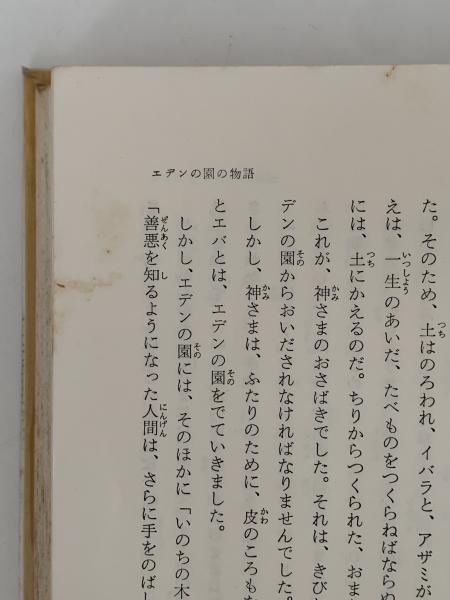 エデンの園の物語
た。そのため、土はのろわれ、イバラと、アザミが
えは、一生のあいだ、たべものをつくらねばならぬ
には、土にかえるのだ。ちりからつくられた、おま
これが、神さまのおさばきでした。それは、きび
デンの園からおいだされなければなりませんでした。
しかし、神さまは、ふたりのために、皮のころも
とエバとは、エデンの園をでていきました。
しかし、エデンの園には、そのほかに「いのちの木
「善悪を知るようになった人間は、さらに手をのばし